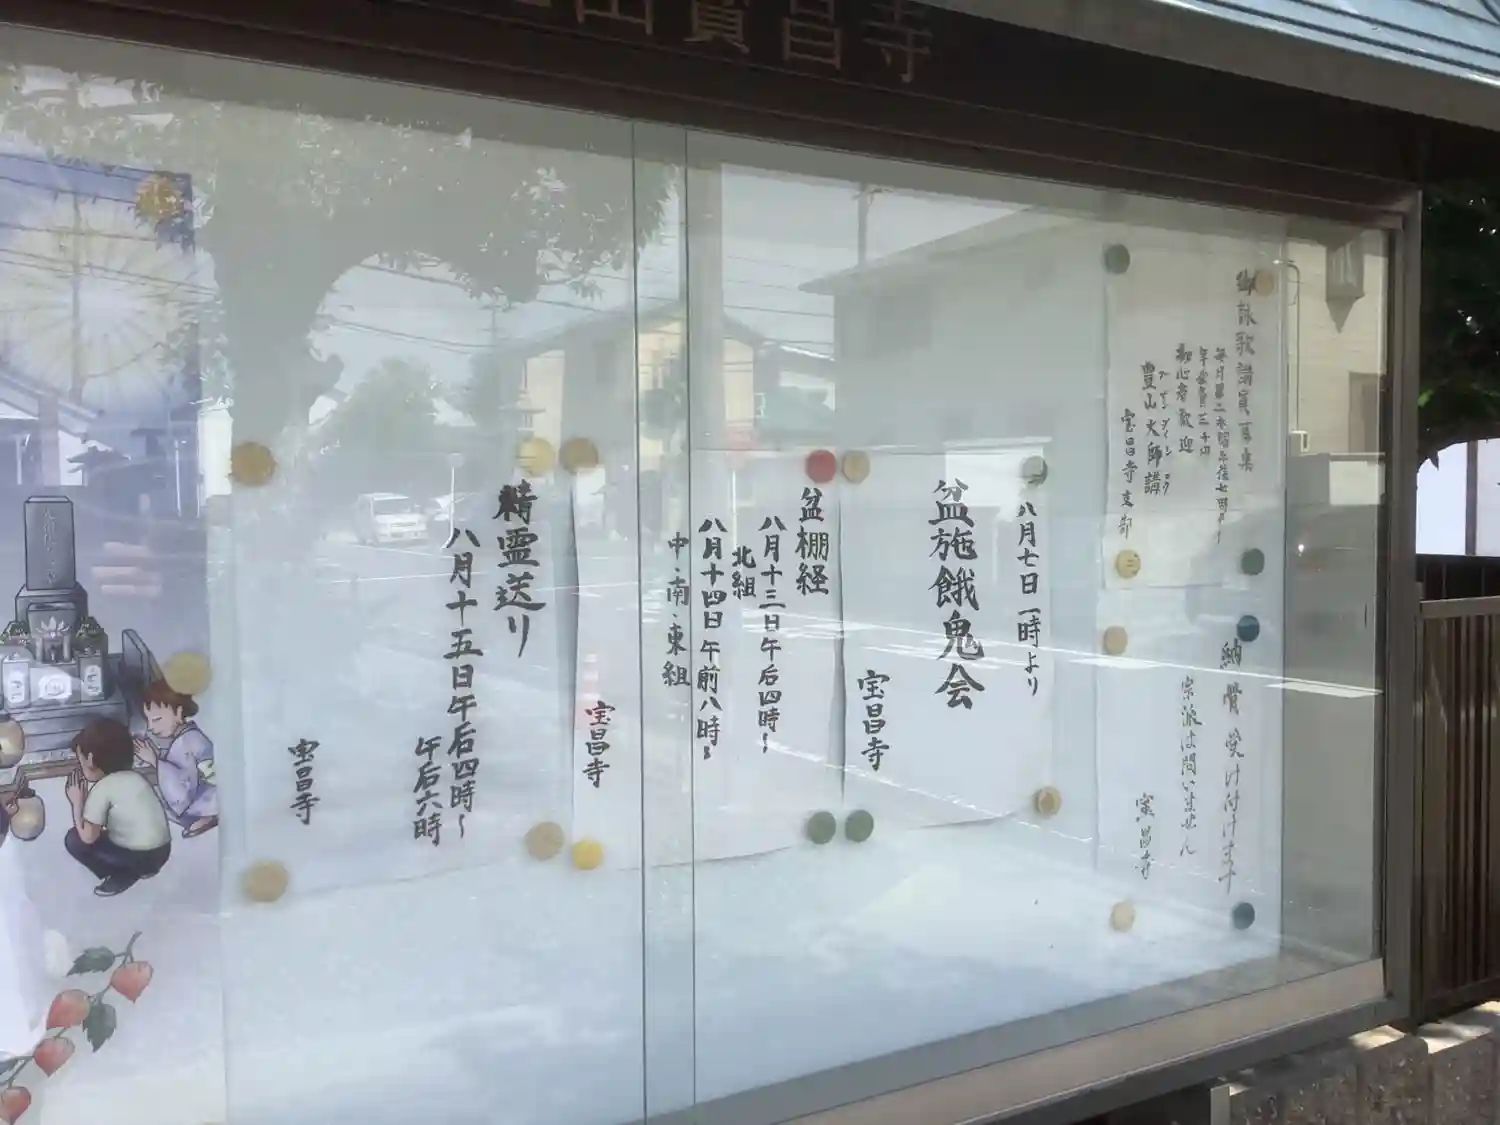 山寳昌寺
御詠歌講員募集
毎月第二木曜午後七時より
初心者歓迎
豊山大師講
宝昌寺支部
納骨受け付けます
宗派は問いません
宝昌寺
八月七日一時より
盆施餓鬼会
宝昌寺
盆棚経
八月十三日午后四時〜
北組
八月十四日午前八時〜
中・南・東組
宝昌寺
精霊送り
八月十五日午后四時〜
午后六時
宝昌寺